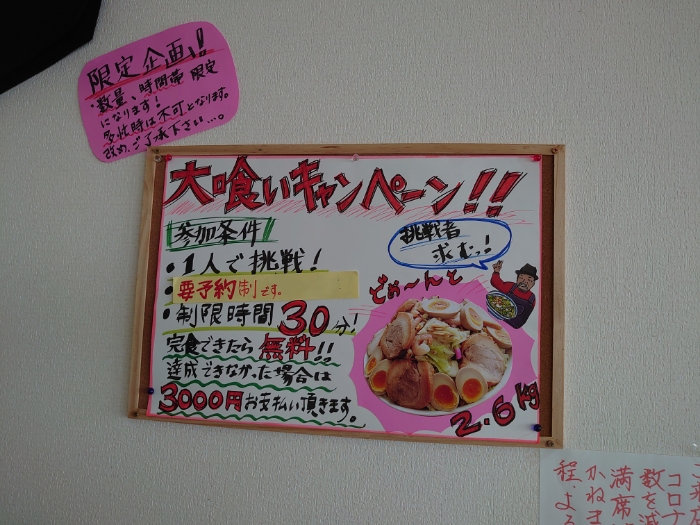 限定企画!!
・数量、時間帯 限定
になります!
多忙時は不可となります。
改め、ご了承下さい…。
大喰いキャンペーン!!
参加条件
・1人で挑戦!
・要予約制です。
・制限時間 30分!
完食できたら 無料!!
達成できなかった場合は
3000円お支払い頂きます。
挑戦者
求むっ!
どぉ〜んと
2.6㌔
コロナ
数を減
満席
かねま
程.よろ